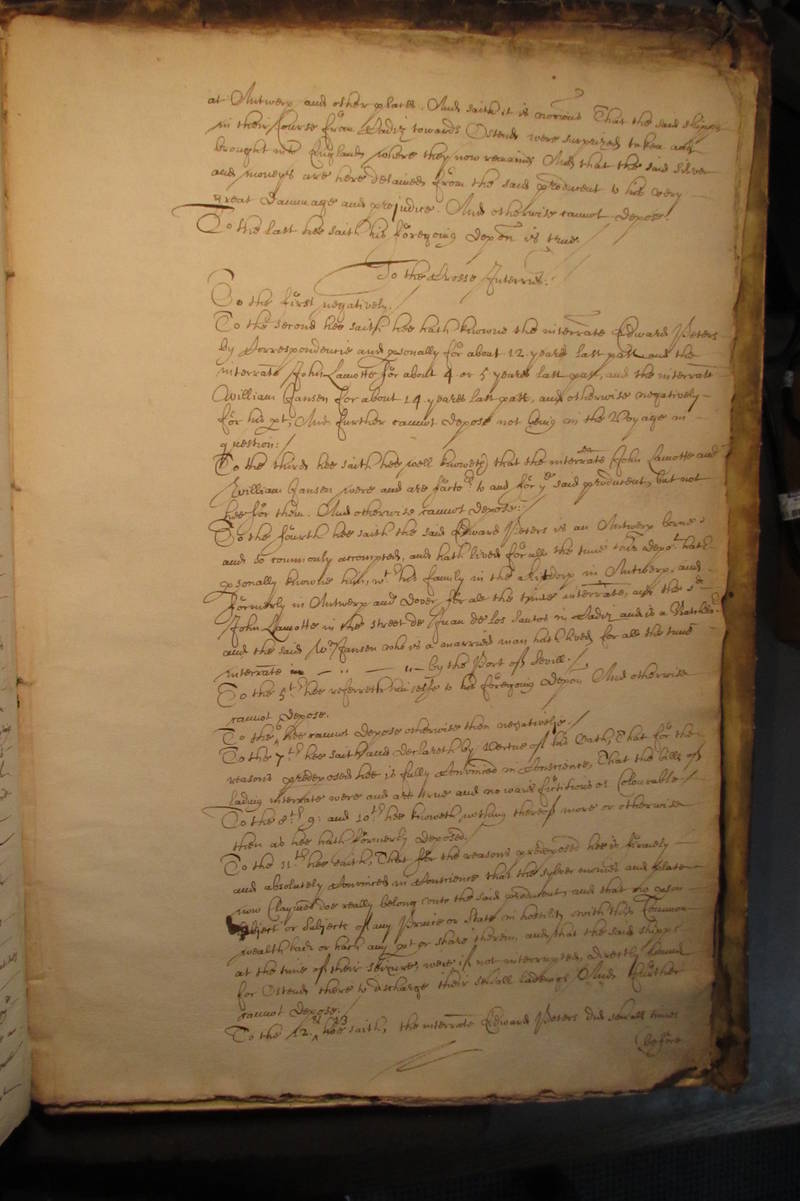 at Antwerp and other places. And saith it is notorious That the said shipps
in their Course from Cadiz towards Ostend were surprized taken and
brought into England where they now remaine And that the said silver
and moneys are here detained from the said producent to his very
great dammage and prejudice. And otherwise cannot depose.
To the last hee saith his foregoing depon is true
To the Crosse Interries.
To the first negatively.
To the second hee saith hee hath knowne the interrate Edward Peters
by Correspondencie and psonally for about 12 yeares last past and the
interrate John Lamotte for about 4 or 5 yeares last past, and the interrate
William Jansen for about 14 yeares last past, and otherwise negatively
for his pt, And further cannot depose not being in the Voyage in
question:/
To the third hee saith hee well knoweth that the interrate John Lamotte and
William Jansen were and are factors to and for ye said producent, but not
hee for them. And otherwise cannot depose:/
To the fourth hee saith the said Edward Peters is an Antwerp borne
and so commonly accompted, and hath lived for all the time this depot hath
psonally knowne him, wt his family in the in Antwerp, and
formerly in Antwerp and Dover for all the time interrate, and the sd
John Lamotte in the street de Juan de los Santos in Cadiz and is a
and the said Wm Jansen who is a married man hath lived for all the time
interrate in by the Port of Sevill./
To the 5th hee referreth himselfe to his foregoing depon And otherwise
cannot depose.
To the hee cannot depose otherwise then negatively./
To the 7th hee saith and declareth by Vertue of his Oath, That for the
reasons predeposed hee is fully Convinced in Conscience, That the bills of
lading interrate were and are true and no wayes fictitious or Colourable/
To the 8th 9: and 10th hee knoweth nothing thereof more or otherwise
then as hee hath formerly deposed./
To the 11th hee saith, That for the reasons predeposed hee is firmely
and absolutely Convinced in Conscience that the sylver monies and plate
now Claymed doe really belong unto the said producent, and that no pson
subject or subjects of any Prince or State in hostility with this Common
wealth hath or had any pt or share therein, and that the said shipps
at the time of their seizures were if not interrupted, directly bound
for Ostend there to discharge their severall ladeings And further
cannot depose./
To the 12th 13 hee saith, the interrate Edward Peters did severall times
before